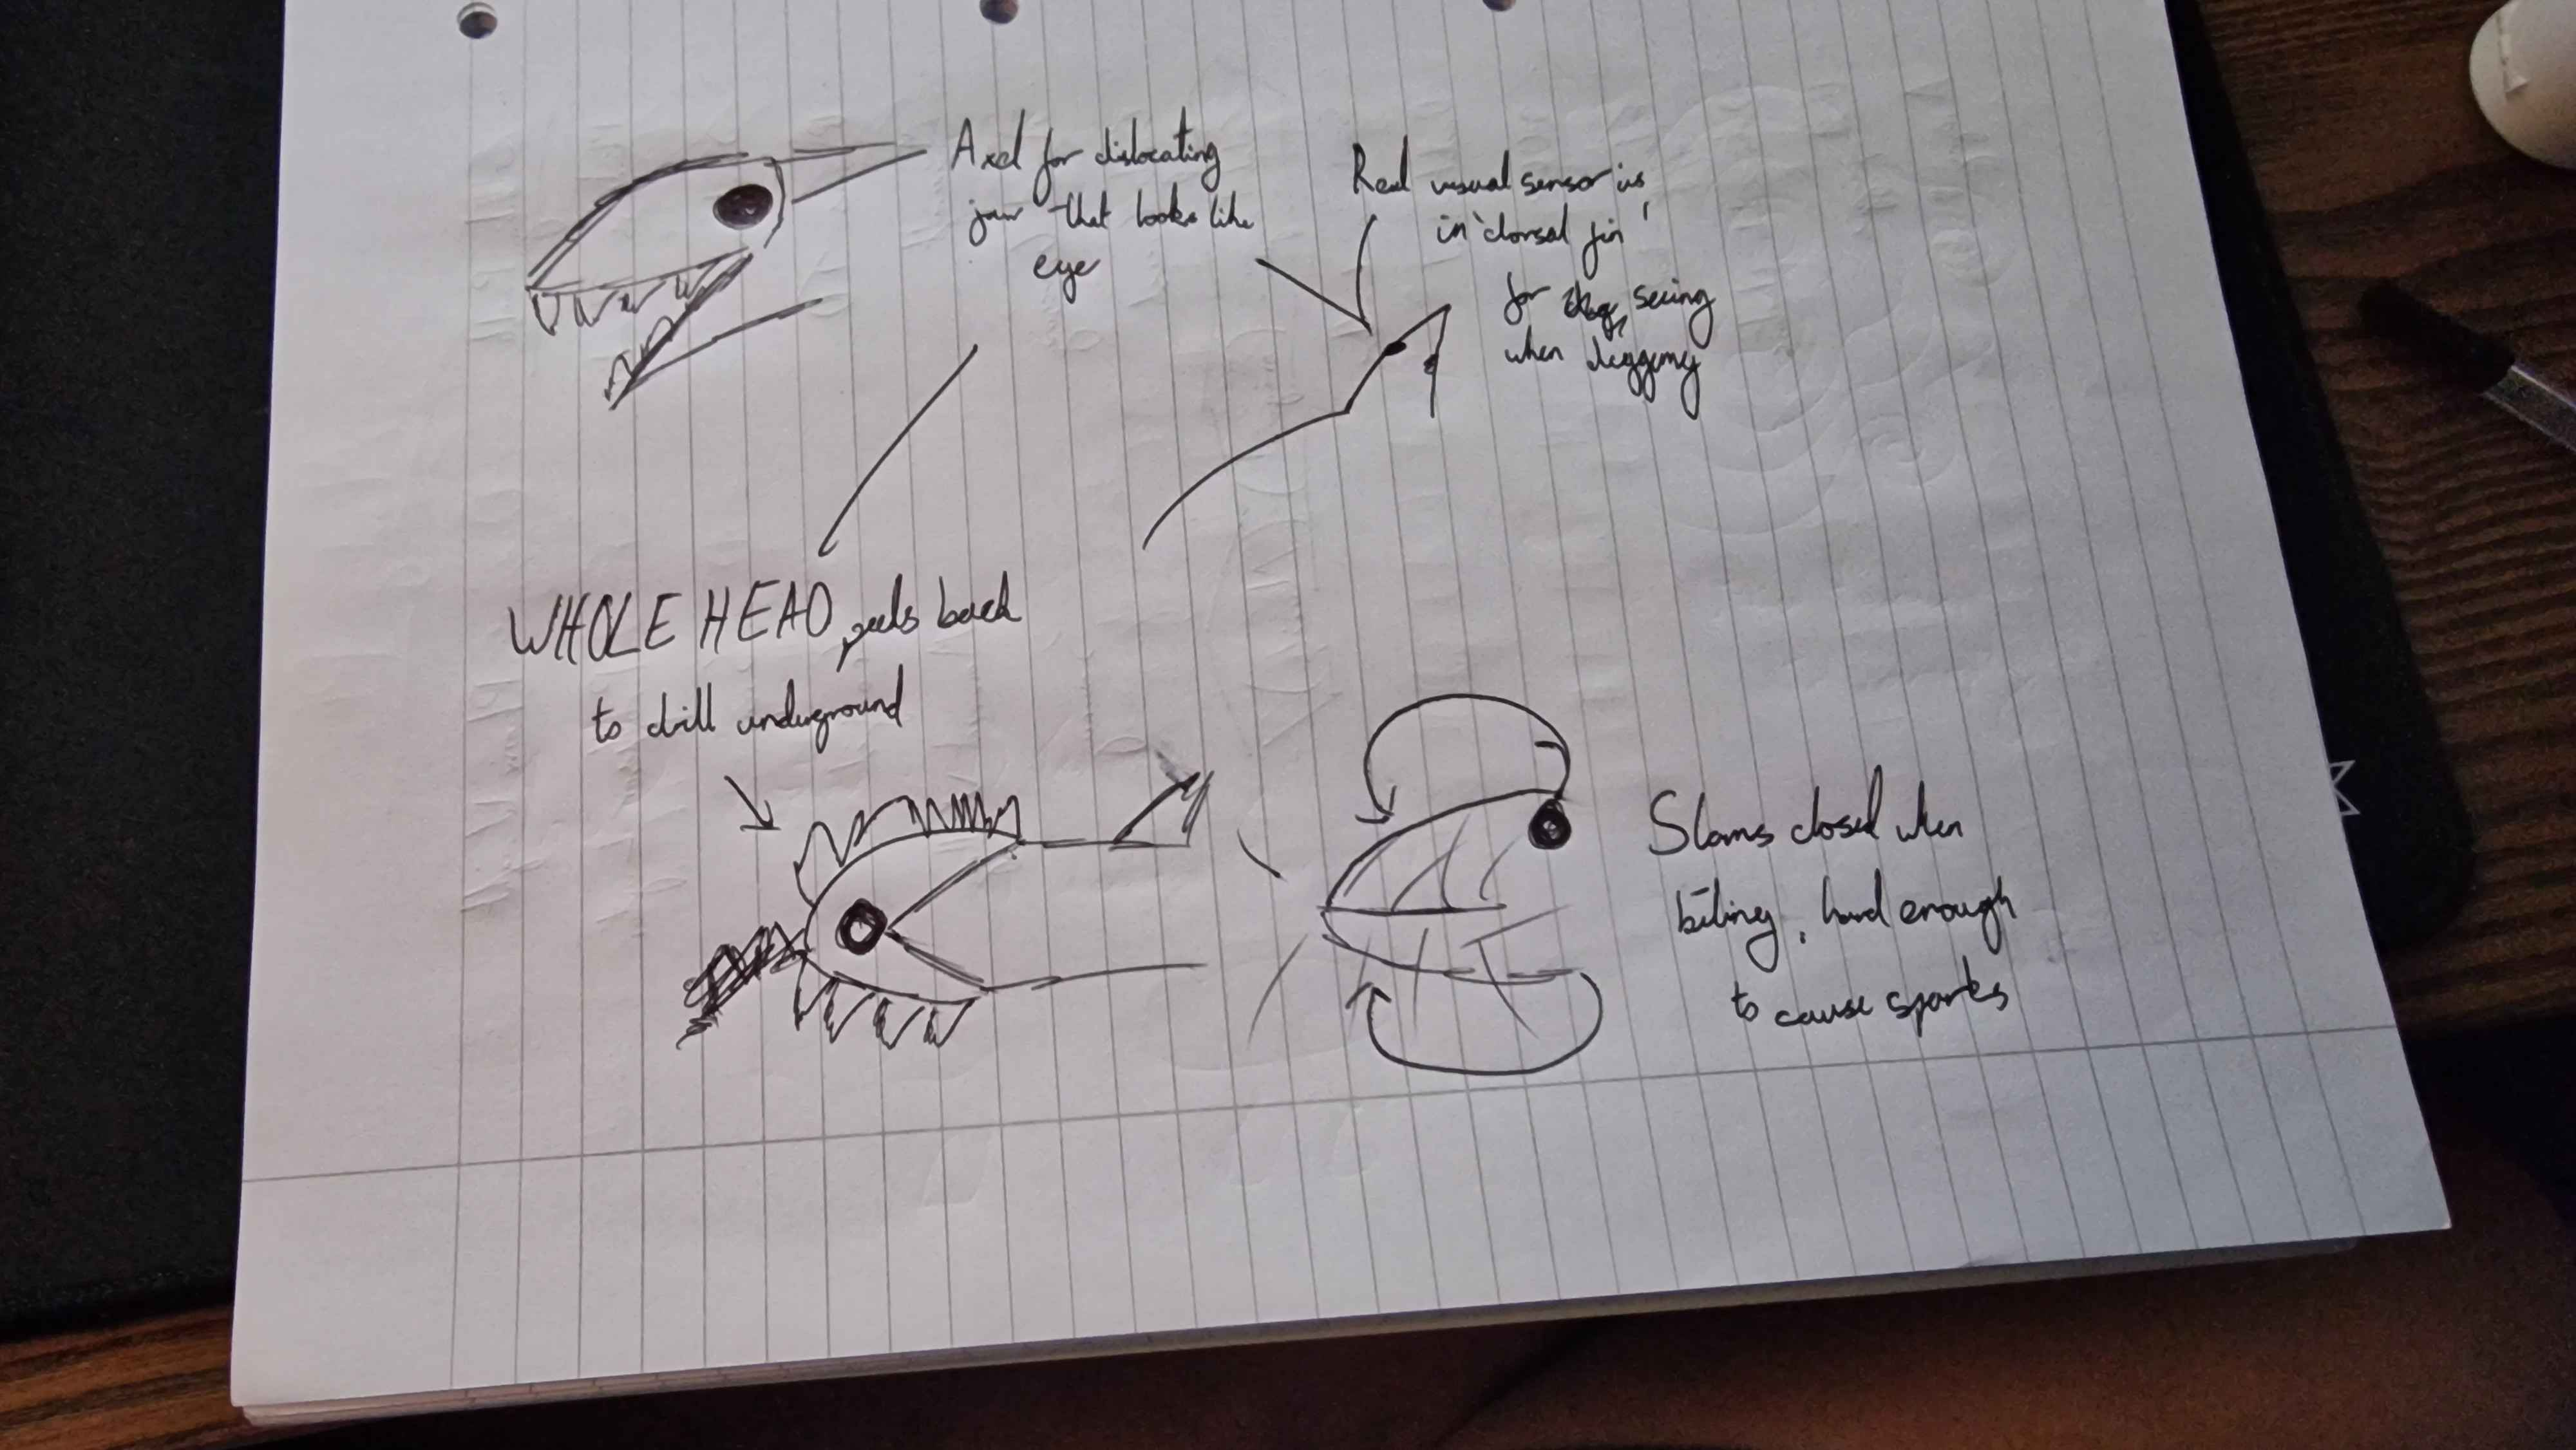 Axel for dislocating
jaw that looks like
eye
Real visual sensor is
in 'dorsal fin'
for seeing
when digging
WHOLE HEAD peels back
to drill underground
Slams closed when
biting, hard enough
to cause sparks